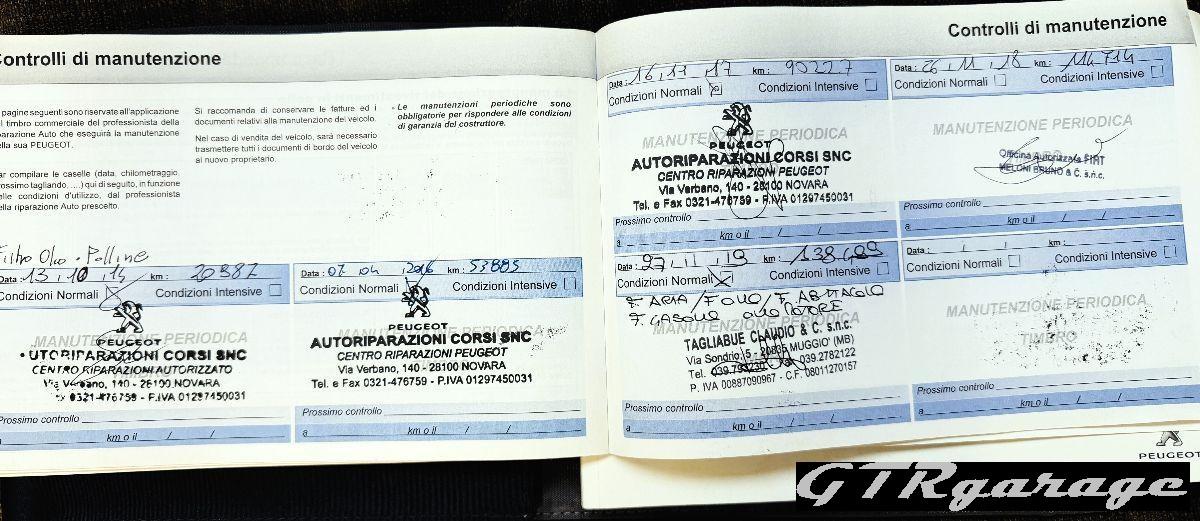 Controlli di manutenzione
pagine seguenti sono riservate all'applicazione
timbro commerciale del professionista della
parazione Auto che eseguirà la manutenzione
ella sua PEUGEOT.
ar compilare le caselle (data, chilometraggio,
rossimo tagliando, ....) qui di seguito, in funzione
elle condizioni d'utilizzo, dal professionista
ella riparazione Auto prescelto.
Si raccomanda di conservare le fatture ed i
documenti relativi alla manutenzione del veicolo.
Nel caso di vendita del veicolo, sarà necessario
trasmettere tutti i documenti di bordo del veicolo
al nuovo proprietario.
- Le manutenzioni periodiche sono
obbligatorie per rispondere alle condizioni
di garanzia del costruttore.
Filtro Olio - Polline
Data : 13 , 10 , 14 km : 20387
Condizioni Normali Condizioni Intensive
MANUTENZIONE PERIODICA
PEUGEOT
UTORIPARAZIONI CORSI SNC
CENTRO RIPARAZIONI AUTORIZZATO
Via Verbano, 140 - 28100 NOVARA
0321-476759 - P.IVA 01297450031
Prossimo controllo
a km o il / /
Data : 07 04 2016 km : 53885
Condizioni Normali Condizioni Intensive
MANUTENZIONE PERIODICA
PEUGEOT
AUTORIPARAZIONI CORSI SNC
CENTRO RIPARAZIONI PEUGEOT
Via Verbano, 140 - 28100 NOVARA
Tel. e Fax 0321-476759 - P.IVA 01297450031
Prossimo controllo
a km o il / /
Controlli di manutenzione
Data : 16, 11, 17 km : 90227
Condizioni Normali Condizioni Intensive
MANUTENZIONE PERIODICA
PEUGEOT
AUTORIPARAZIONI CORSI SNC
CENTRO RIPARAZIONI PEUGEOT
Via Verbano, 140 - 28100 NOVARA
Tel. e Fax 0321-476759 - P.IVA 01297450031
Prossimo controllo
a km o il / /
Data : 26, 11, 18 km : 114714
Condizioni Normali Condizioni Intensive
MANUTENZIONE PERIODICA
Officina Autorizzata FIAT
MELONI BRUNO & C. s.n.c.
Prossimo controllo
a km o il / /
Data : 27, 11, 19 km : 138.489
Condizioni Normali Condizioni Intensive
F. ARIA / F. OLIO / F. ABITACOLO
F. GASOLIO OLIO MOTORE
MANUTENZIONE PERIODICA
TAGLIABUE CLAUDIO & C. s.n.c.
Via Sondrio, 5 - 20835 MUGGIO' (MB)
Tel. 039.793230 039.2782122
P. IVA 00887090967 - C.F. 08011270157
Prossimo controllo
a km o il / /
Data : / / km :
Condizioni Normali Condizioni Intensive
MANUTENZIONE PERIODICA
TIMBRO
Prossimo controllo
a km o il / /
PEUGEOT
GTRgarage